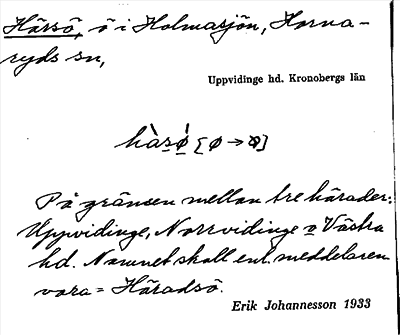 Härsö, ö i Holmasjön, Horna-
ryds sn,
Uppvidinge hd. Kronobergs län
hàsǿ [ø → ]
På gränsen mellan tre härader:
Uppvidinge, Norrvidinge o Västra
hd. Namnet skall enl. meddelaren
vara = Häradsö.
Erik Johannesson 1933